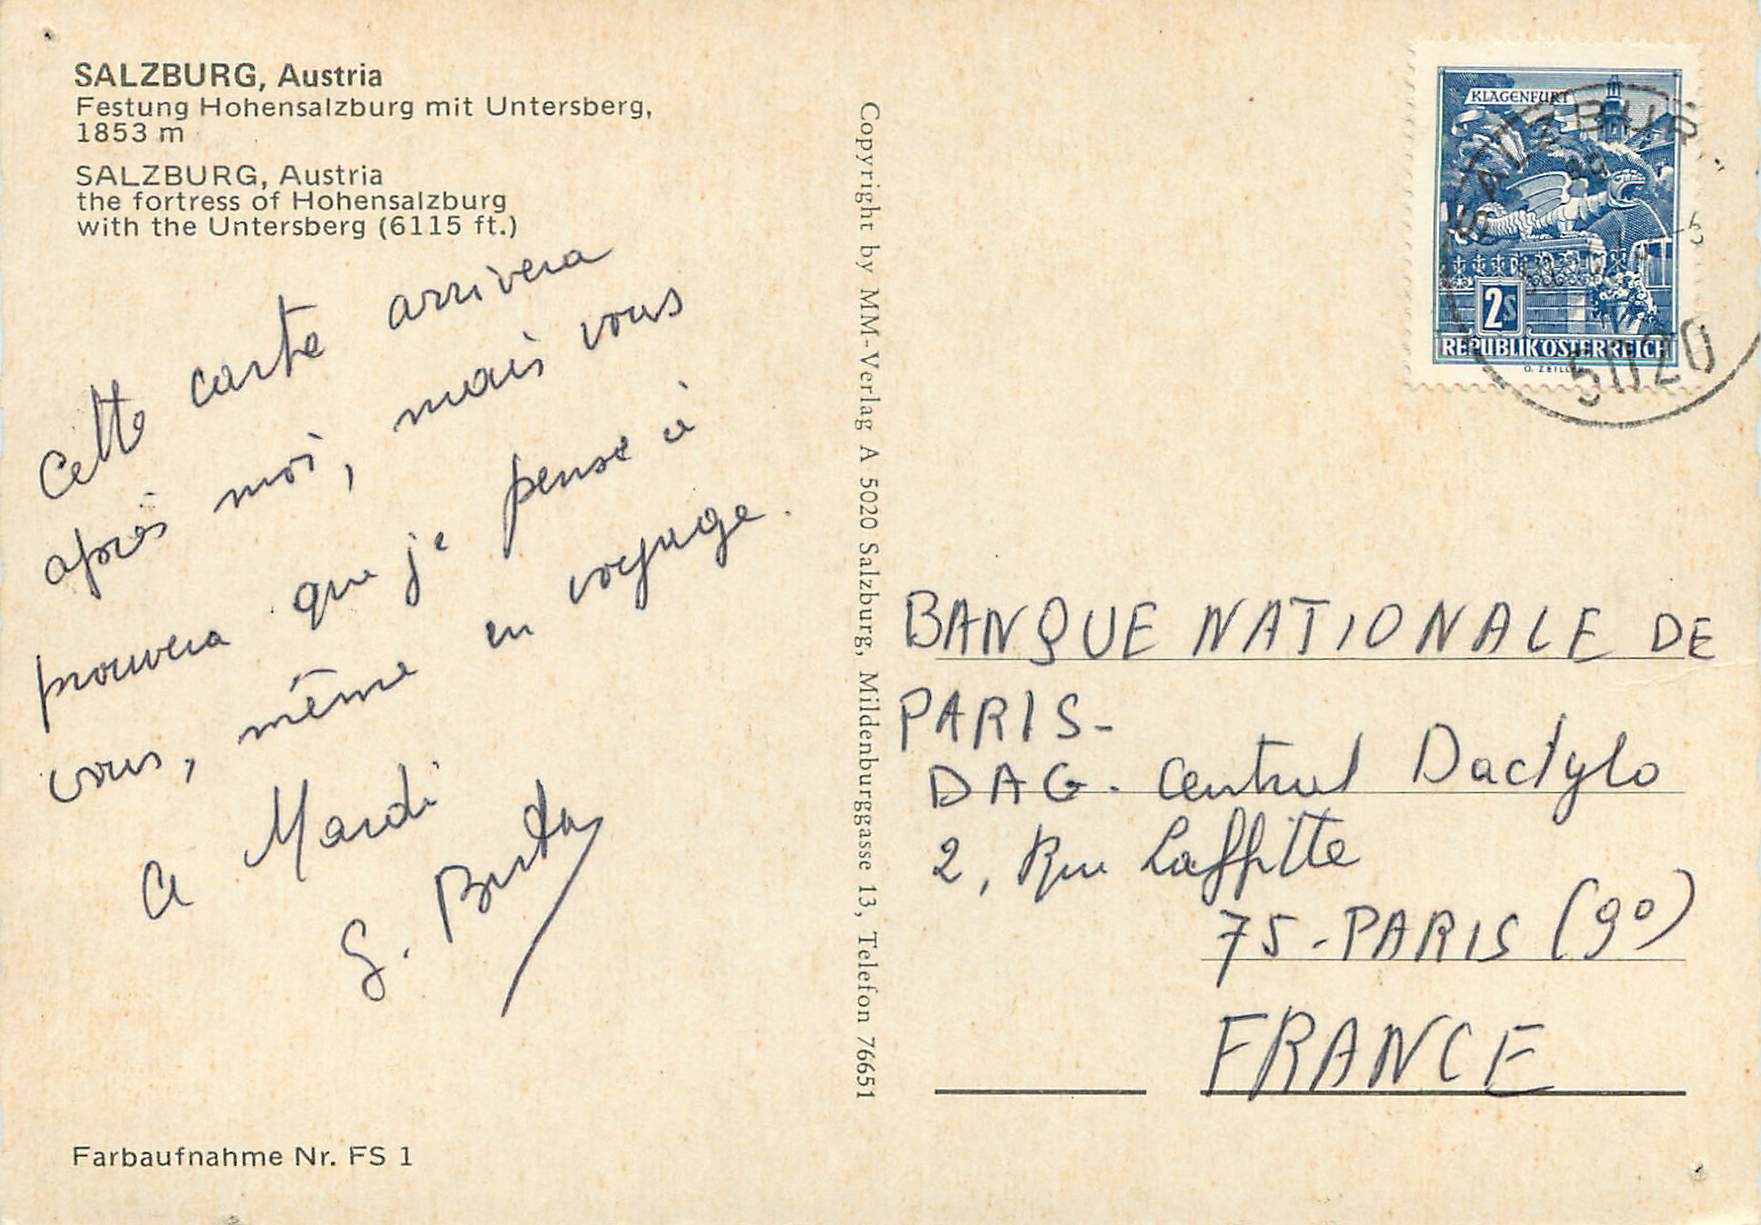 SALZBURG, Austria
Festung Hohensalzburg mit Untersberg,
1853 m
SALZBURG, Austria
the fortress of Hohensalzburg
with the Untersberg (6115 ft.)
Cette carte arrivera
après moi, mais vous
prouvera que je pense à
vous, même en voyage.
A Mardi
G.
Farbaufnahme Nr. FS 1
Copyright by MM-Verlag A 5020 Salzburg, Mildenburggasse 13, Telefon 76651
KLAGENFURT
2S
REPUBLIK ÖSTERREICH
O. ZEILLER
SALZBURG
5020
BANQUE NATIONALE DE
PARIS-
DAG. Central Dactylo
2, Rue Laffitte
75-PARIS (9°)
FRANCE